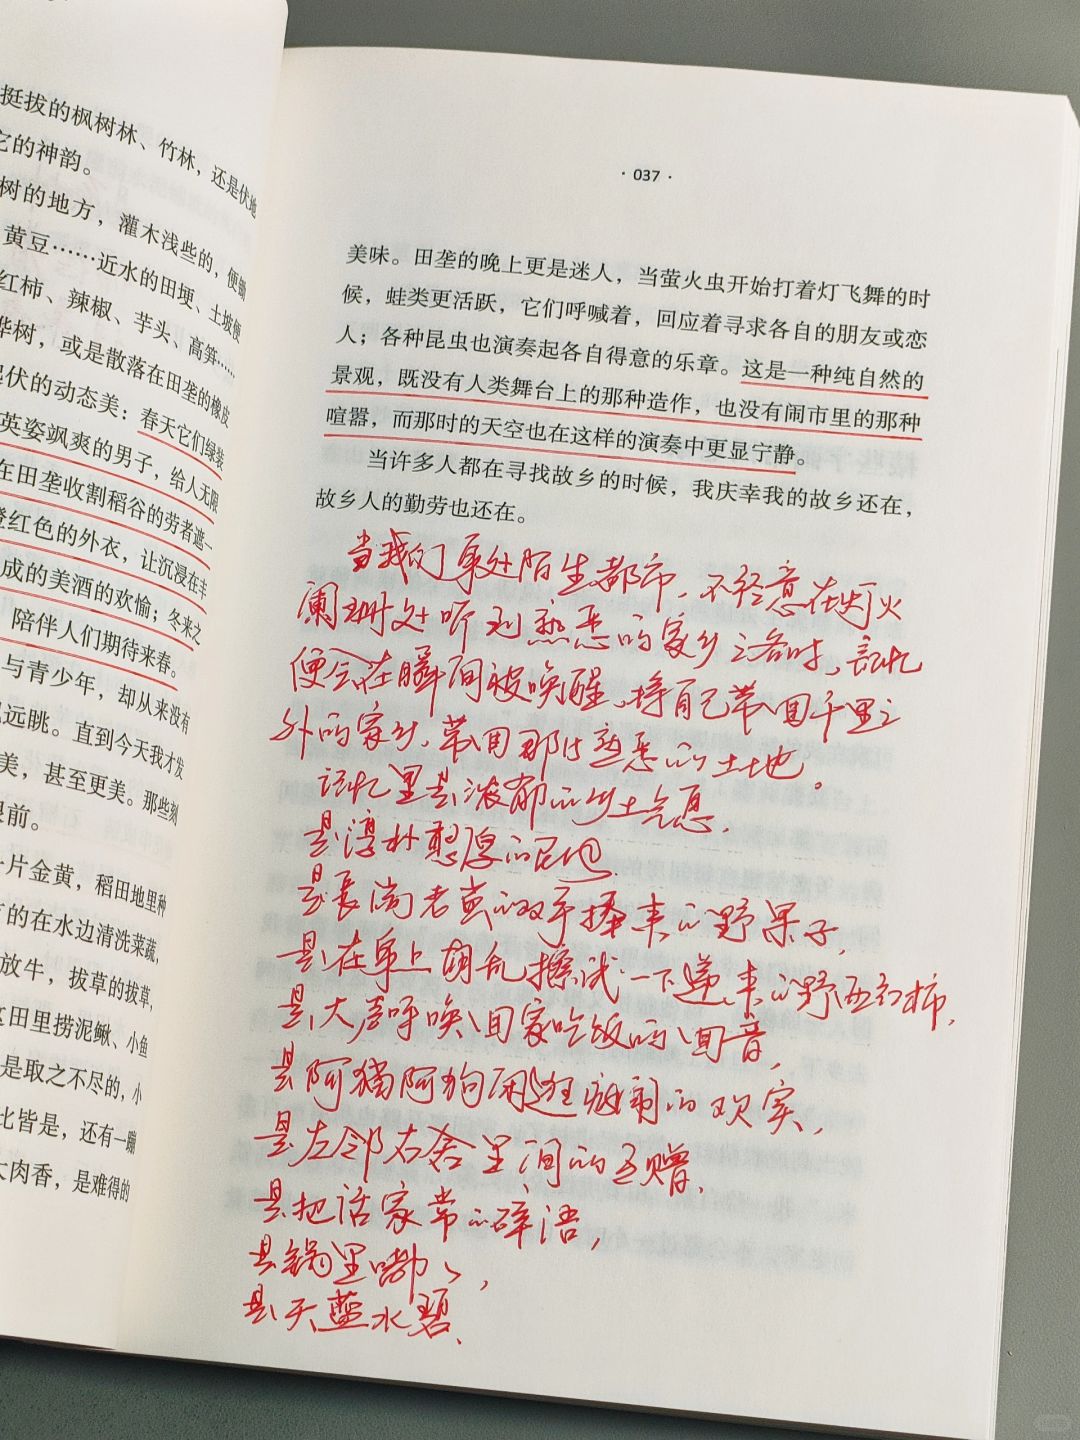 挺拔的枫树林、竹林，还是伏地
它的神韵。
树的地方，灌木浅些的，便锄
黄豆……近水的田埂、土坡便
红柿、辣椒、芋头、高笋……
桦树，或是散落在田垄的橡皮
起伏的动态美：春天它们绿装
英姿飒爽的男子，给人无限
在田垄收割稻谷的劳者遮一
橙红色的外衣，让沉浸在丰
成的美酒的欢愉；冬来之
陪伴人们期待来春。
与青少年，却从来没有
远眺。直到今天我才发
美，甚至更美。那些刻
眼前。
一片金黄，稻田地里种
有的在水边清洗菜蔬，
放牛，拔草的拔草，
这田里捞泥鳅、小鱼
是取之不尽的，小
比皆是，还有一蹦
大肉香，是难得的
· 037 ·
美味。田垄的晚上更是迷人，当萤火虫开始打着灯飞舞的时
候，蛙类更活跃，它们呼喊着，回应着寻求各自的朋友或恋
人；各种昆虫也演奏起各自得意的乐章。这是一种纯自然的
景观，既没有人类舞台上的那种造作，也没有闹市里的那种
喧嚣，而那时的天空也在这样的演奏中更显宁静。
当许多人都在寻找故乡的时候，我庆幸我的故乡还在，
故乡人的勤劳也还在。
当我们身处陌生都市，不经意在灯火
阑珊处听到熟悉的家乡之名时，记忆
便会在瞬间被唤醒，将自己带回千里之
外的家乡，带回那片熟悉的土地。
记忆里是浓郁的乡土气息，
是淳朴憨厚的民风，
是长满老茧的双手捧来的野果子，
是在身上胡乱擦拭一下递来的野西红柿，
是大声呼唤回家吃饭的回音，
是阿猫阿狗闲逛疯闹的欢实，
是左邻右舍里间的互赠，
是把话家常的碎语，
是锅里嘟嘟，
是天蓝水碧，